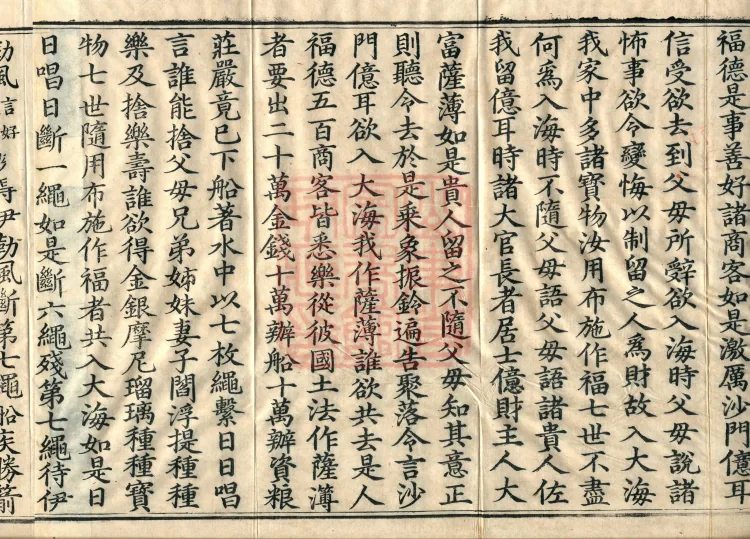 福德是事善好諸商客如是激厲沙門億耳
信受欲去到父母所辭欲入海時父母說諸
怖事欲令變悔以制留之人為財故入大海
我家中多諸寶物汝用布施作福七世不盡
何為入海時不隨父母語父母語諸貴人佐
我留億耳時諸大官長者居士億財主人大
富薩薄如是貴人留之不隨父母知其意正
則聽令去於是乘象振鈴遍告聚落令言沙
門億耳欲入大海我作薩薄誰欲共去是人
福德五百商客皆悉樂從彼國土法作薩薄
者要出二十萬金錢十萬辦船十萬辦資粮
莊嚴竟已下船著水中以七枚繩繫日日唱
言誰能捨父母兄弟姊妹妻子閻浮提種種
樂及捨樂壽誰欲得金銀摩尼瑠璃種種寶
物七世隨用布施作福者共入大海如是日
日唱日斷一繩如是斷六繩殘第七繩待伊
勒風言好 得伊勒風斷第七繩船疾勝箭